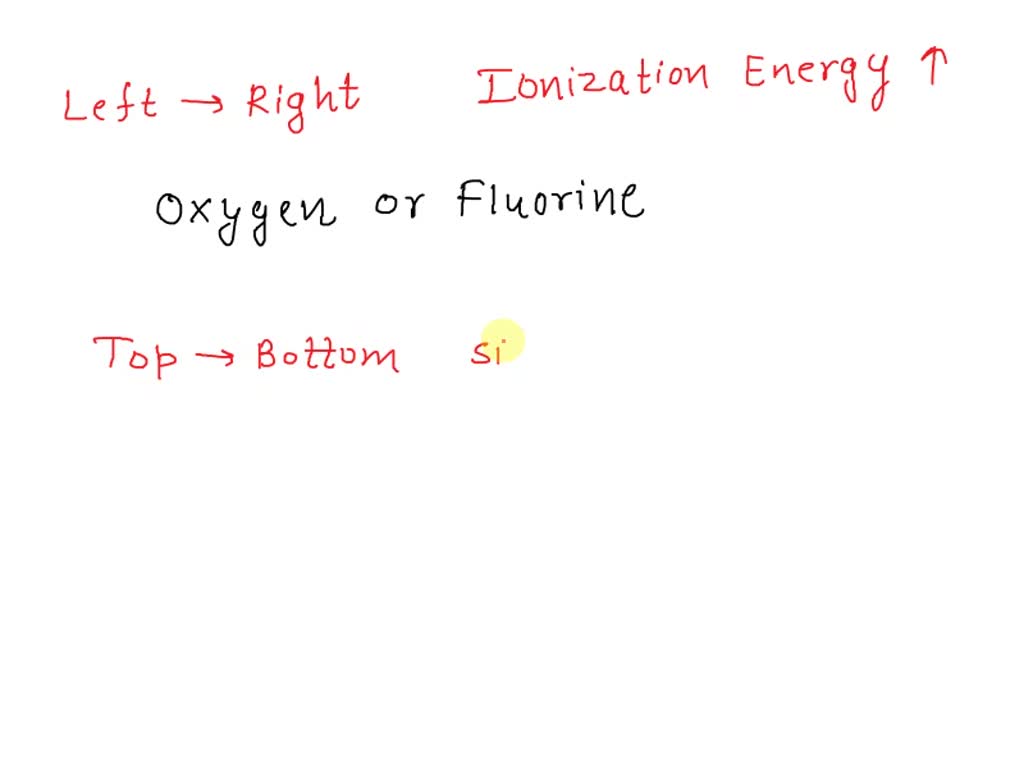 Left → Right Ionization Energy ↑
Oxygen or Fluorine
Top → Bottom Si